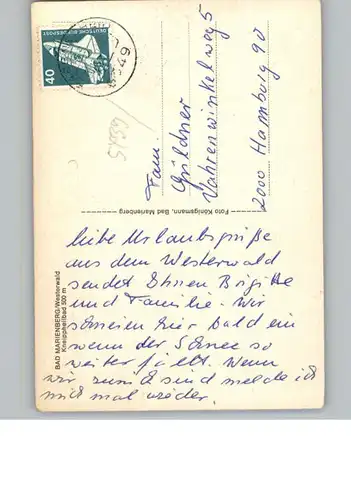 DEUTSCHE BUNDESPOST
40
5439
Fam.
Güldner
Vahrenwinkelweg 5
2000 Hamburg 90
Foto Königsmann, Bad Marienberg
BAD MARIENBERG/Westerwald
Kneippheilbad 500 m
liebe Urlaubsgrüße
aus dem Westerwald
sendet Ihnen Brigitte
und Familie. Wir
schneien hier bald ein
wenn der Schnee so
weiter fällt. Wenn
wir zurück sind melde ich
mich mal wieder.